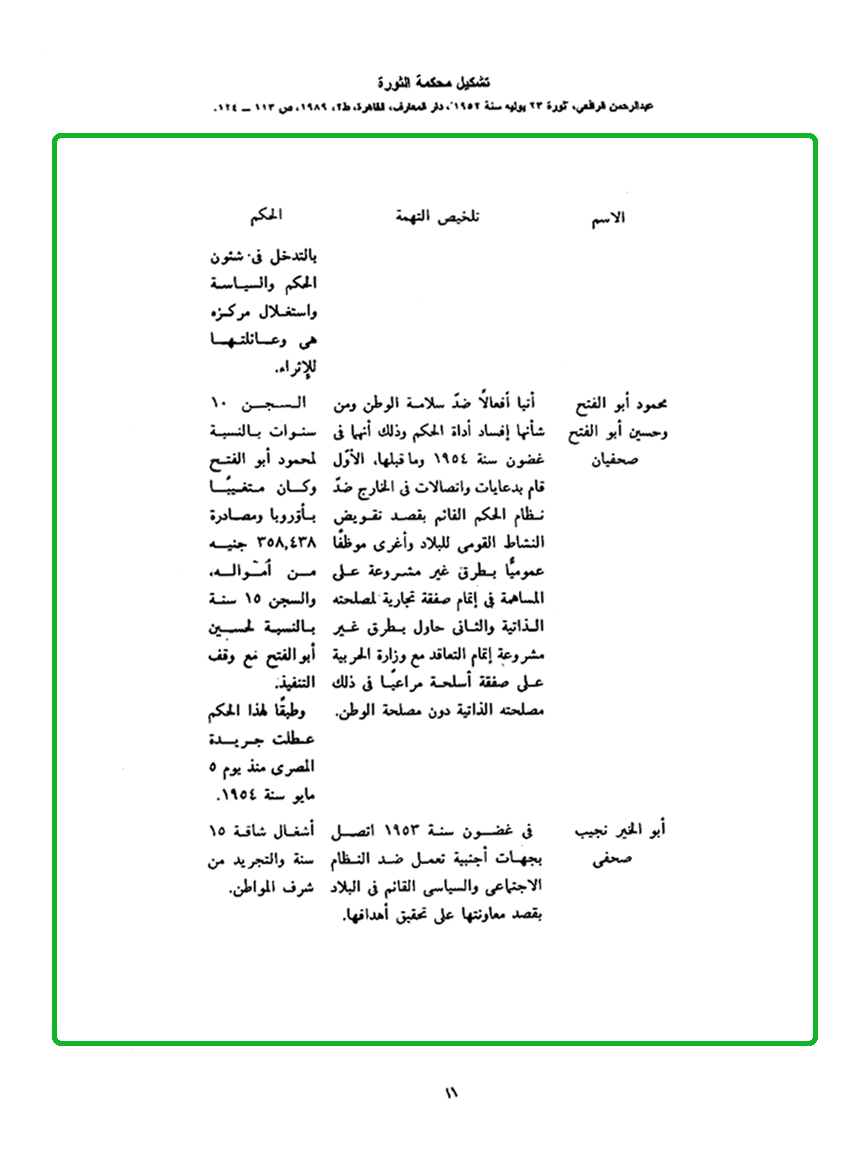 تشكيل محكمة الثورة
عبدالرحمن الرافعي، ثورة ٢٣ يوليه سنة ١٩٥٢، دار المعارف، القاهرة، ط٢، ١٩٨٩، ص ١١٣ – ١٢٤.
الاسم تلخيص التهمة الحكم
بالتدخل فى شئون
الحكم والسياسة
واستغلال مركزه
هى وعائلتها
للإثراء.
محمود أبو الفتح أتيا أفعالًا ضدّ سلامة الوطن ومن السجن ١٠
وحسين أبو الفتح شأنها إفساد أداة الحكم وذلك أنهما فى سنوات بالنسبة
صحفيان غضون سنة ١٩٥٤ وما قبلها، الأوّل لمحمود أبو الفتح
قام بدعايات واتصالات فى الخارج ضدّ وكان متغيبًا
نظام الحكم القائم بقصد تقويض بأوروبا ومصادرة
النشاط القومى للبلاد وأغرى موظفًا ٣٥٨,٤٣٨ جنيه
عموميًّا بطرق غير مشروعة على من أمواله،
المساهمة فى إتمام صفقة تجارية لمصلحته والسجن ١٥ سنة
الذاتية والثانى حاول بطرق غير بالنسبة لحسين
مشروعة إتمام التعاقد مع وزارة الحربية أبو الفتح مع وقف
على صفقة أسلحة مراعيًا فى ذلك التنفيذ.
مصلحته الذاتية دون مصلحة الوطن. وطبقًا لهذا الحكم
عطلت جريدة
المصرى منذ يوم ٥
مايو سنة ١٩٥٤.
أبو الخير نجيب فى غضون سنة ١٩٥٣ اتصل أشغال شاقة ١٥
صحفى بجهات أجنبية تعمل ضد النظام سنة والتجريد من
الاجتماعى والسياسى القائم فى البلاد شرف المواطن.
بقصد معاونتها على تحقيق أهدافها.
١١